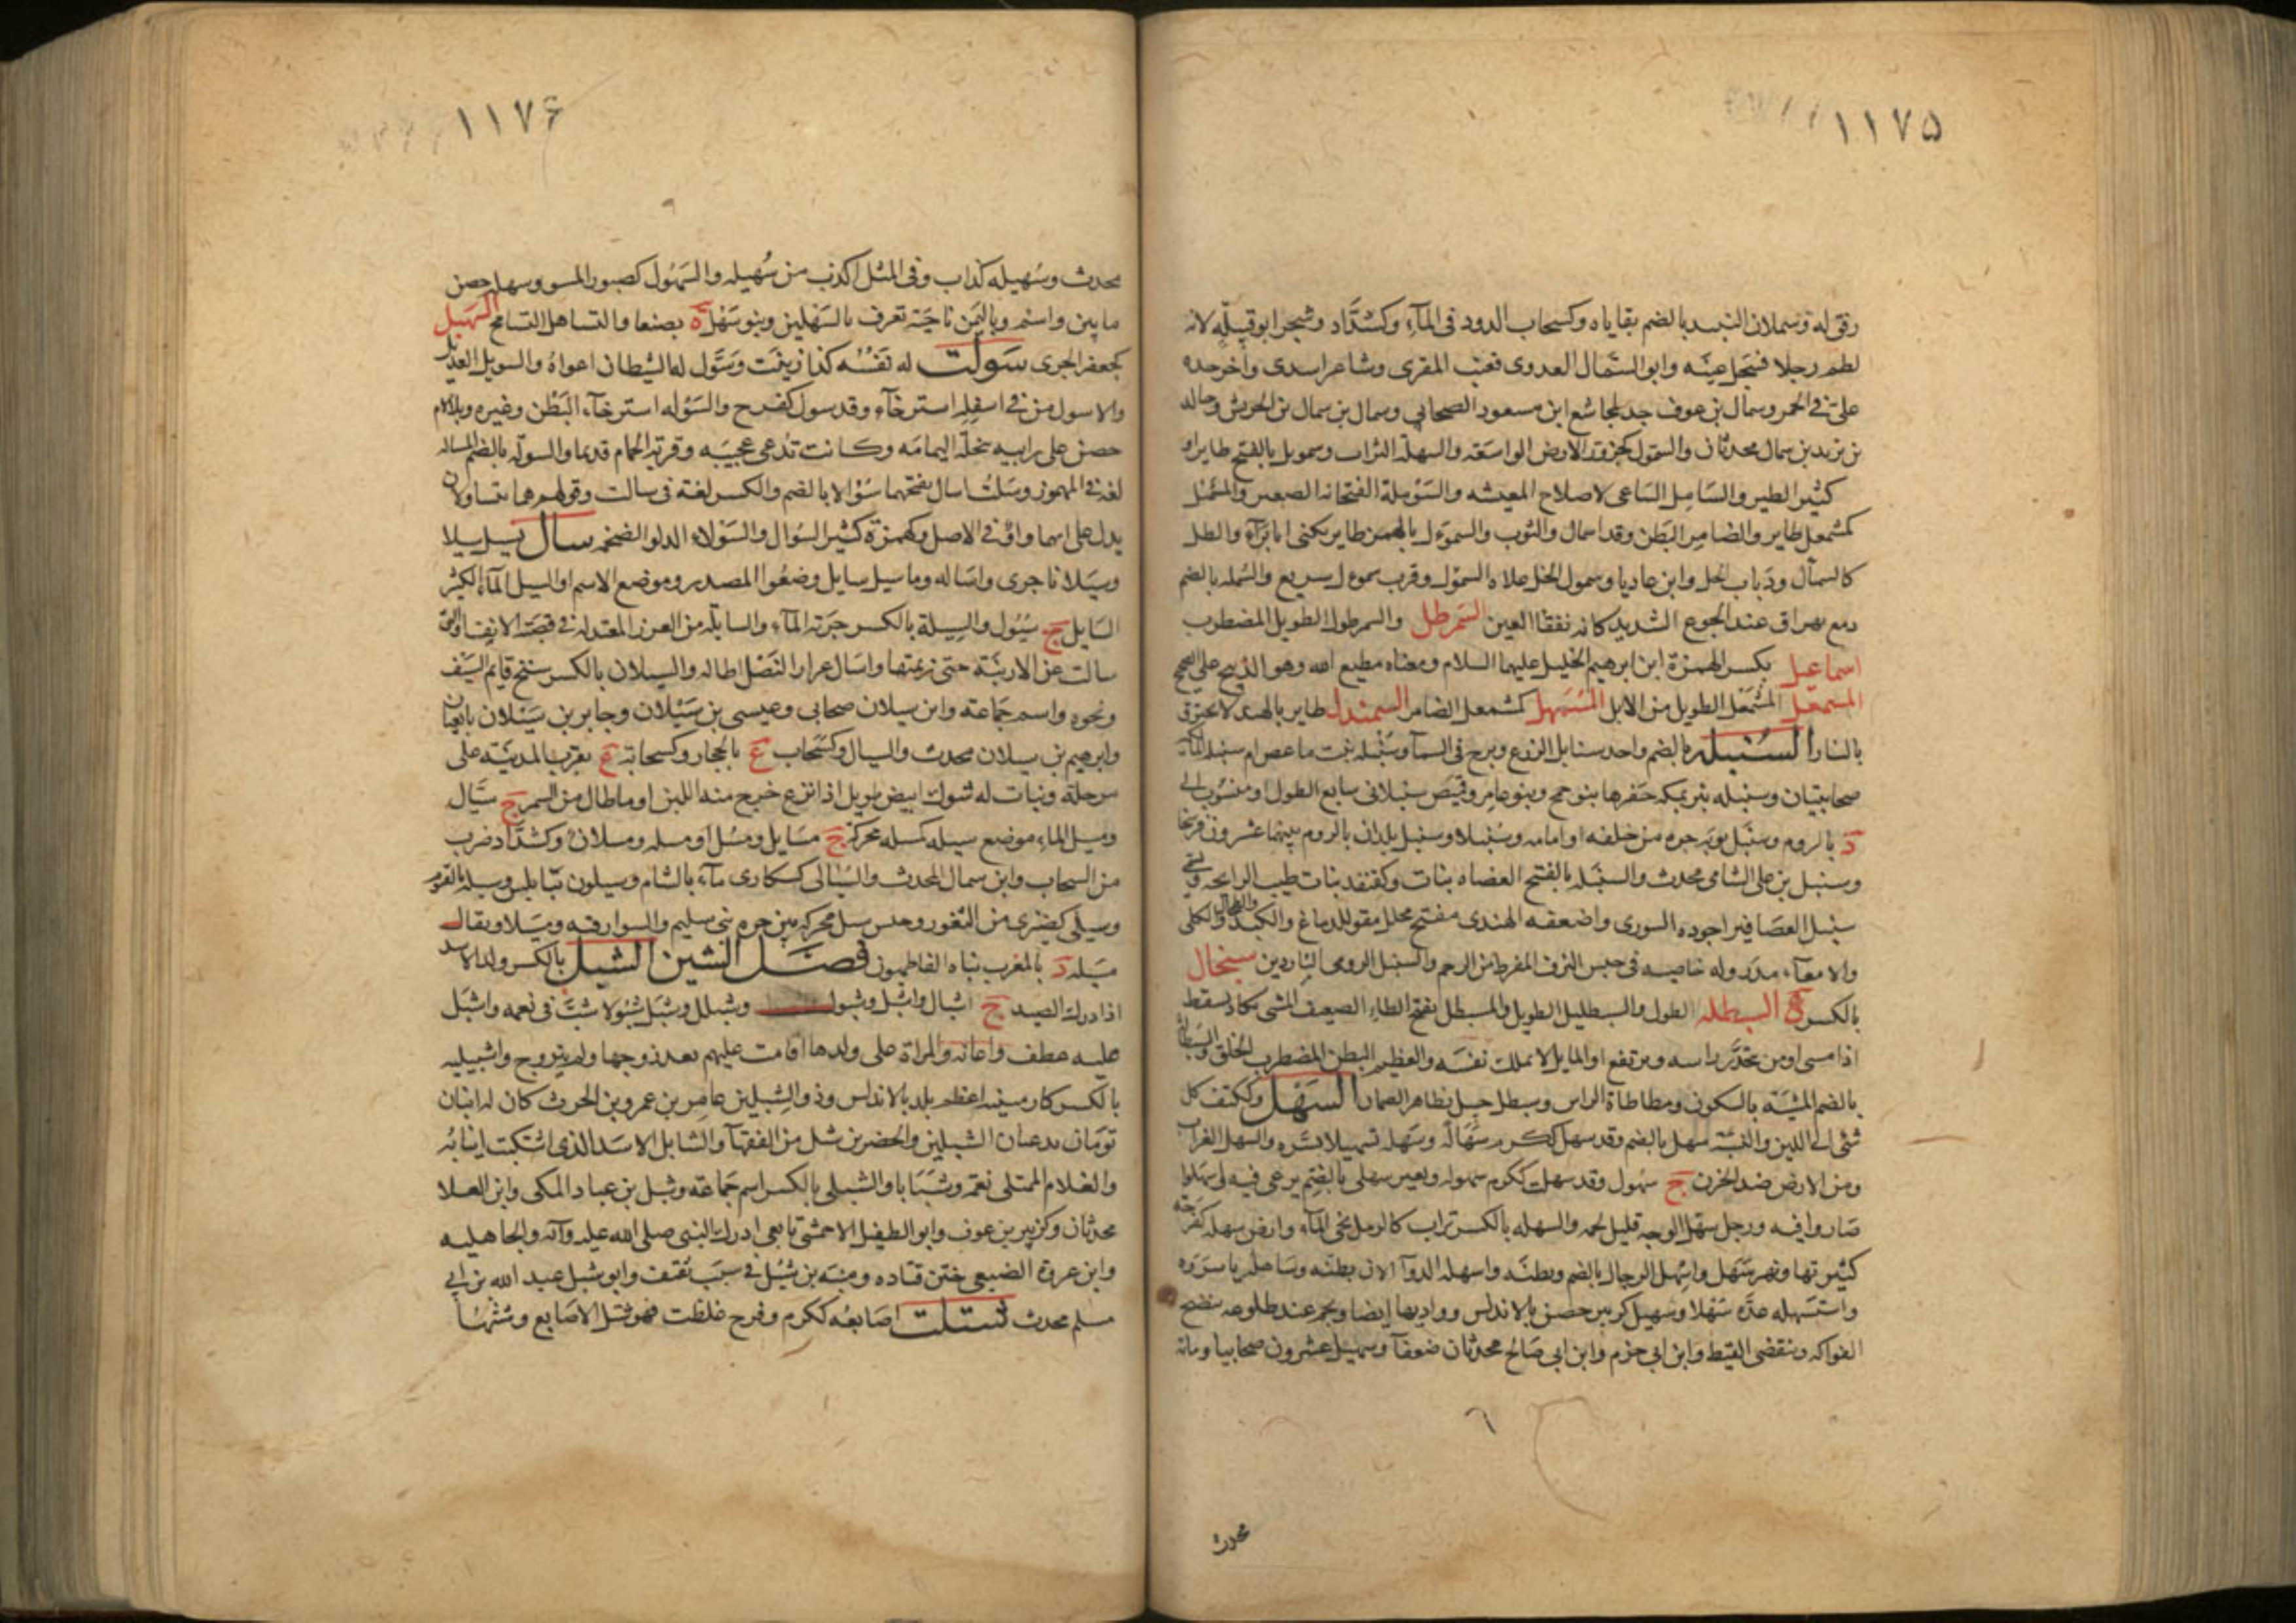 ١١٧۵
رقق له وسملان النبيذ بالضم بقاياه وكسحاب الدود فى المآء وكشدّاد وشجر ابو قبيلة لانه
لطم رجلا فسَمل عينه وابو السّمال العدوى قعنب المقرى وشاعر اسدى وآخر حده
على فى الخمر وسمال بن عوف جد لمجاشع ابن مسعود الصحابي وسمال بن سمال بن الحريش وخالد
بن يزيد بن سمال محدثان والسمول كجرول الارض الواسعة والسهلة التراب وسمويل بالفتح طاير او
كثير الطير والسامل الساعى لاصلاح المعيشه والسَوْملة الفنجانه الصغير والمسمئل
كمشمعل طاير والضامر البطن وقد اسمال والثوب والسموءل بالهمز طاير يكنى ابا برآء والظل
كالسمأل وذباب الخل وابن عاديا وسمول الخل علاه السمؤل وقرب سموءل سريع والسمله بالضم
دمع يهراق عند الجوع الشديد كانه نفقا العين السَمرطل والسمرطول الطويل المضطرب
اسماعيل بكسر الهمزة ابن ابرهيم الخليل عليهما السلام ومعناه مطيع الله وهو الذبيح على الصحيح
المسمعل المشمعل الطويل من الابل المُسْمَهِل كشمعل الضامر السمندل طاير بالهند لا يحترق
بالنار السُنبله بالضم واحد سنابل الزرع وبرج فى السمآ وسنبله بنت ماعص ام سنبله المآلكيه
صحابيتان وسنبله بئر بمكه حفرها بنو جمح وبنو عامر وقميص سنبلانى سابع الطول او منسوب الى
دَ بالروم وسَنبَل ثوبه جره من خلفه او امامه وسُنبلا وسنبل بلدان بالروم بينهما عشرون فرسخا
وسنبل بن على الشامى محدث والسنبله بالفتح العضاه بنات وكقنفذ نبات طيب الرايحه ويسمى
سنبل العصافير اجوده السورى واضعفه الهندى مفتح محلل مقو للدماغ والكبد والطحال والكلى
والامعآء مدر وله خاصيه فى حبس النزف المفرط من الرحم والسنبل الرومى الناردين سنجال
بالكسر ة السنطله الطول والسنطليل الطويل والمسنطل بفتح الطاء الضعيف المشى يكاد يسقط
اذا مشى او من تحدّر راسه ويرتفع او المايل لا يملك نفسه والعظيم البطن المضطرب الخلق والسنطاله
بالضم المشية بالسكون ومطاطاة الراس وسنطل جبل بظاهر الصمان السَهْل وككتف كل
شئ الى اللين والنسبة سهلى بالضم وقد سهل ككرم سَهَالة وسَهله تسهيلا يَسّره والسهل الغراب
ومن الارض ضد الحزن جَ سُهول وقد سهلت ككرم سهوله وبعير سهلى بالضم يرعى فيه واسهلوا
صاروا فيه ورجل سهل الوجه قليل لحمه والسهله بالكسر تراب كالرمل يجى المآء وارض سهله كفرحة
كثيرتها ونهر سَهِل واسْهل الرجل بالضم وبطنُه واسهله الدوآ الان بطنَه وسَاهله ياسَرَه
واستسهله عدّه سَهْلا وسهيل كزبير حصن بالاندلس وواد بها ايضا ونجم عند طلوعه ينضج
الفواكه وينقضى القيظ وابن ابى حزم وابن ابي صالح محدثان ضعفآ وسهيل عشرون صحابيا ومائة
محدث
١١٧۶
محدث وسُهيله كذاب وفى المثل اكذب من سُهيله والسَهُول كصبور المسو وسهله حصن
مابين واسم وباليَمن ناحيَة تعرف بالسَهْلين وبنو سَهْل ةَ بصنعا والتساهل التسامح السَهْبل
كجعفر الجرى سَوّلت له نفسُه كذا زينت وسَوّل له الشيطان اغواهُ والسويل العديل
والاسول من فى اسفله استرخآء وقد سول كفرح والسَوْله استرخآء البَطْن وغيره وبلالام
حصن على رابيه بنخلة اليمامَه وكانت تُدعى عجيبَه وقرية الحمام قديما والسولة بالضم المساله
لغة فى المهموز وسَلتُ اسال بفتحهما سُوْالا بالضم والكسر لغة فى سالت وقولهم هما يتساولان
يدل على انها واوٌ فى الاصل وكهمزة كثير السُوال والسَوْلاء الدلو الضخمه سال يسيل سيلا
وسَيَلانا جرى واسَاله وماء سيل سايل وضعُوا المصدر وموضع الاسم او السيل المآء الكثير
السايل جَ سُيُول والسِيلة بالكسر جرية المآء والسايلَه من الغرر المعتدله فى قصبَة الانف او التى
سالت عن الارنبَة حتى زيمتها واسَال غرار النَصْل اطاله والسيلان بالكسر سنخ قايم السَيْف
ونحوه واسم جَماعة وابن سيلان صحابى وعيسى بن سَيْلان وجابر بن سَيْلان تابعيّان
وابرهيم بن سيلان محدث والسيال وكسَحاب عَ بالحجاز وكسحابة عَ بقرب المدينه على
مرحلة ونبات له شوك ابيض طويل اذا نزع خرج منه اللبن او ما طال من السمر جَ سَيَال
ومسيل الماء موضع سيله كمسله محركة جَ مسَايل ومُسُل او مسله ومسلان وكشدّاد ضرب
من السحاب وابن سمال المحدث والسُيالى كسكارى مآء بالشام وسيلون بنابلس وسيله بالفيوم
وسيلى كضيزى من الثغور وحبس سيل محركه بين حره بنى سليم والسوارقيه ومسَيلا ويقال
مسَيله دَ بالمغرب بناه الفاطميون فصَل الشين الشبل بالكسر ولد الاسد
اذا درك الصيد جَ اشبال واشبُل وشبول وشبال وشبَل شُبُولا شبَّ فى نعمه واشبَل
عليه عطف واعانه والمراة على ولدها اقامت عليهم بعد زوجها ولم يتزوج واشبيليه
بالكسر كارمينيه اعظم بلد بالاندلس وذو الشبلين عامر بن عمرو بن الحرث كان له ابنان
توَمان يدعيان الشبلين والخضر بن شبل من الفقهآ والشابل الاسَد الذى اشتبكت انيابُه
والغلام الممتلى نعمه وشبَابا والشبلى بالكسر اسم جَماعة وشبل بن عباد المكى وابن العلا
محدثان وكزبير بن عوف وابو الطفيل الاحمشى تابعى ادرك النبى صلى الله عليه وآله والجاهليه
وابن عروة الضبعى ختن قتاده ومنبه بن شُبْل فى نسب ثقيف وابو شبل عبيد الله بن ابى
مسلم محدث شتلت اصَابعُه ككرم وفرح غلظت فهو شتل الاصابع وشثنُها